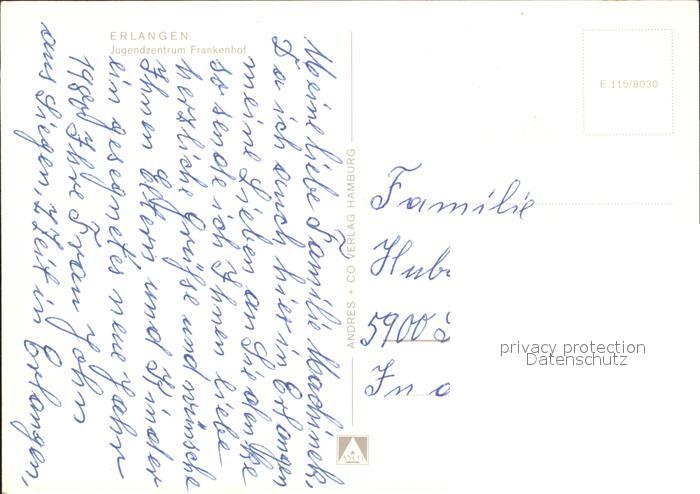 ERLANGEN
Jugendzentrum Frankenhof
Meine liebe Familie
Da ich auch hier in Erlangen
meine Lieben an Sie denke
so sende ich Ihnen liebe
herzliche Grüße und wünsche
Ihnen Eltern und Kinder
ein gesegnetes neue Jahr
1980 Ihre Frau John
aus Siegen, z Zeit in Erlangen,
ANDRES + CO VERLAG HAMBURG
ANCO
E 115/8030
Familie
Hub
5900 S
In d
privacy protection
Datenschutz